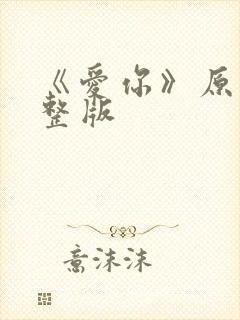 《爱你》原
整版
意沫沫